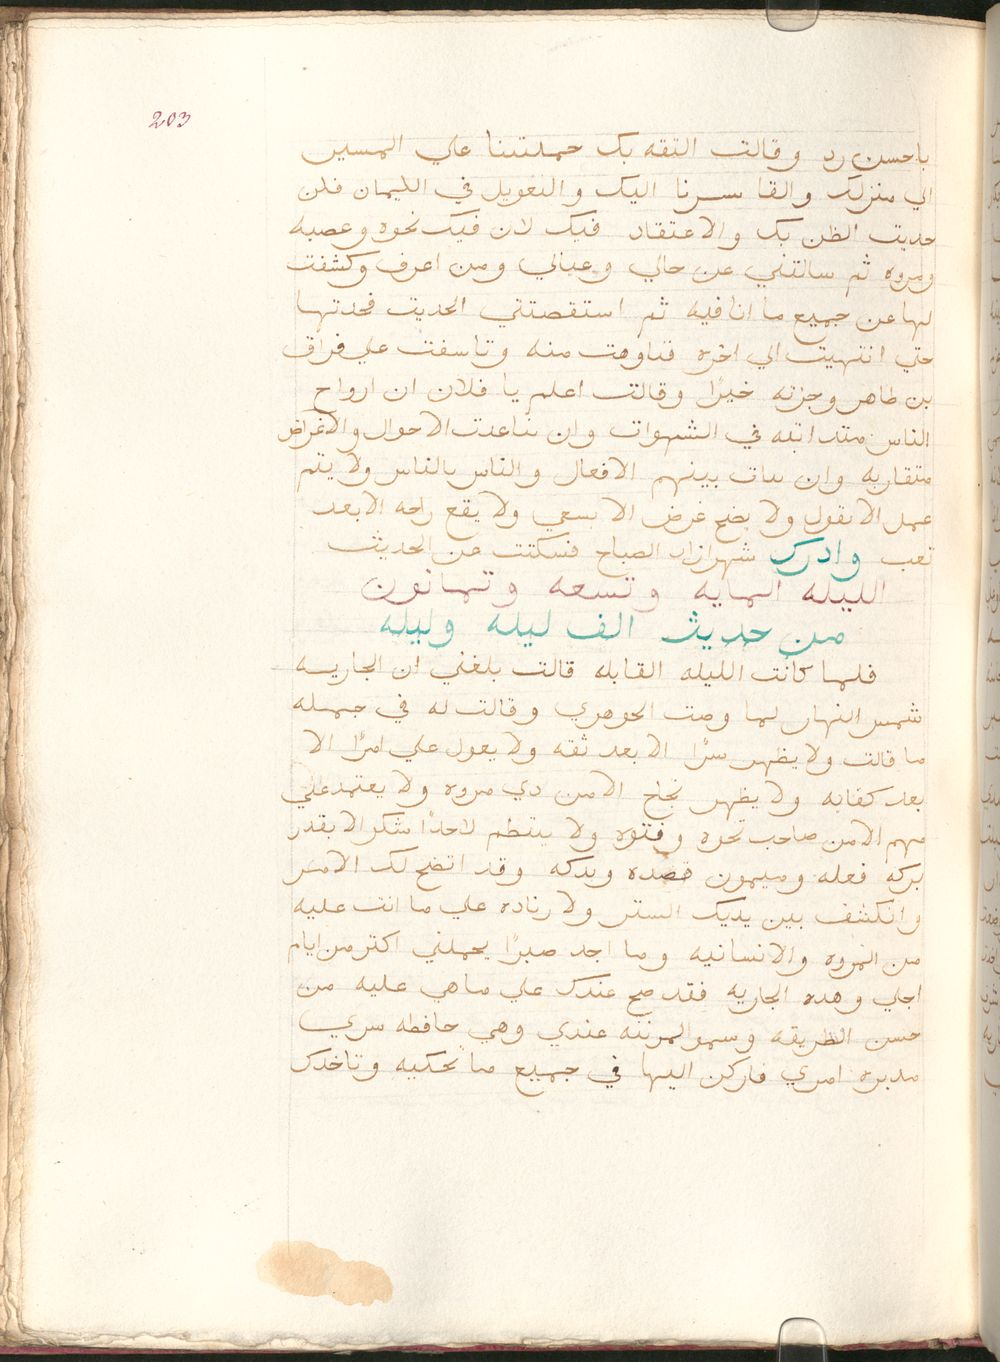 203
باحسن رد وقالت الثقه بك حملتنا علي المسير
الي منزلك والقا سرنا اليك والتعويل في الكتمان فلن
خديت الظن بك والاعتقاد فيك لان فيك نخوه وعصبه
ومروه ثم سالتني عن حالي وعيالي ومن اعرف وكشفت
لها عن جميع ما انا فيه ثم استقصتني الحديث فحدتها
حتي انتهيت الي اخره فتاوهت منه وتاسفت علي فراق
بن طاهر وجزته خيرًا وقالت اعلم يا فلان ان ارواح
الناس متدانيه في الشهوات وان تباعدت الاحوال والاغراض
متقاربه وان بدات بينهم الافعال والناس بالناس ولا يتم
عمل الا بقول ولا يصح غرض الا بسعي ولا يقع راحه الا بعد
تعب وادرك شهرازاد الصباح فسكتت عن الحديث
الليله المايه وتسعه وتمانون
من حديث الف ليله وليله
فلما كانت الليله القابله قالت بلغني ان الجاريه
شمس النهار لما وصت الجوهري وقالت له في جمله
ما قالت ولا يظهر سرًا الا بعد ثقه ولا يعول علي امرًا الا
بعد كفايه ولا يظهر نجاح الا من دي مروه ولا يعتمد علي
مهم الا من صاحب نخوه وفتوه ولا ينتظم لاحدًا شكر الا بقدر
بركه فعله وميمون قصده وبدكه وقد اتضح لك الامر
وانكشف بين يديك الستر ولا زياده علي ما انت عليه
من المروه والانسانيه وما اجد صبرًا يحملني اكتر من ايام
اجلي وهده الجاريه فقد صح عندك علي ما هي عليه من
حسن الطريقه وسمو المرتبه عندي وهي حافظه سري
مدبره امري فاركن اليها في جميع ما تحكيه وتاخدك